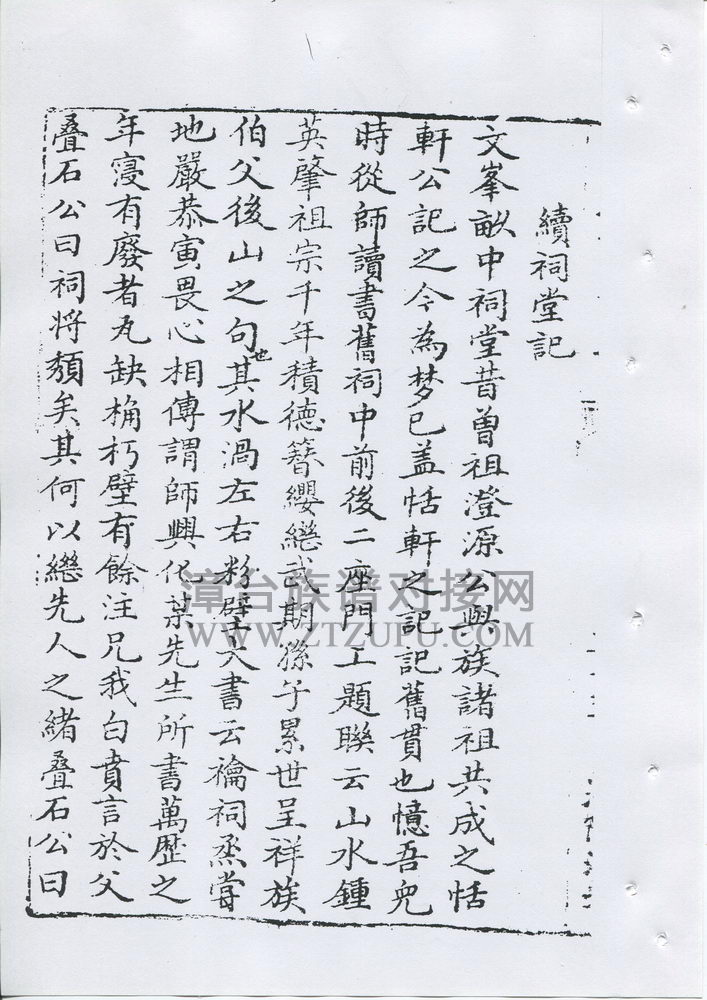 續祠堂記
文峯畝中祠堂昔曾祖澄源公與族諸祖共成之恬
軒公記之今為梦已盖恬軒之記記舊貫也憶吾兒
時從師讀書舊祠中前後二座門工題聯云山水鍾
英肇祖宗千年積德簪纓繼武期孫子累世呈祥族
伯父後山之句也其水渦左右粉壁大書云禴祠烝嘗
地嚴恭寅畏心相傳謂師興化葉先生所書萬歷之
年寖有廢者瓦缺桷朽壁有餘注兄我白賁言於父
叠石公曰祠将頽矣其何以繼先人之緒叠石公曰
漳台族谱对接网
WWW.ZTZUPU.COM